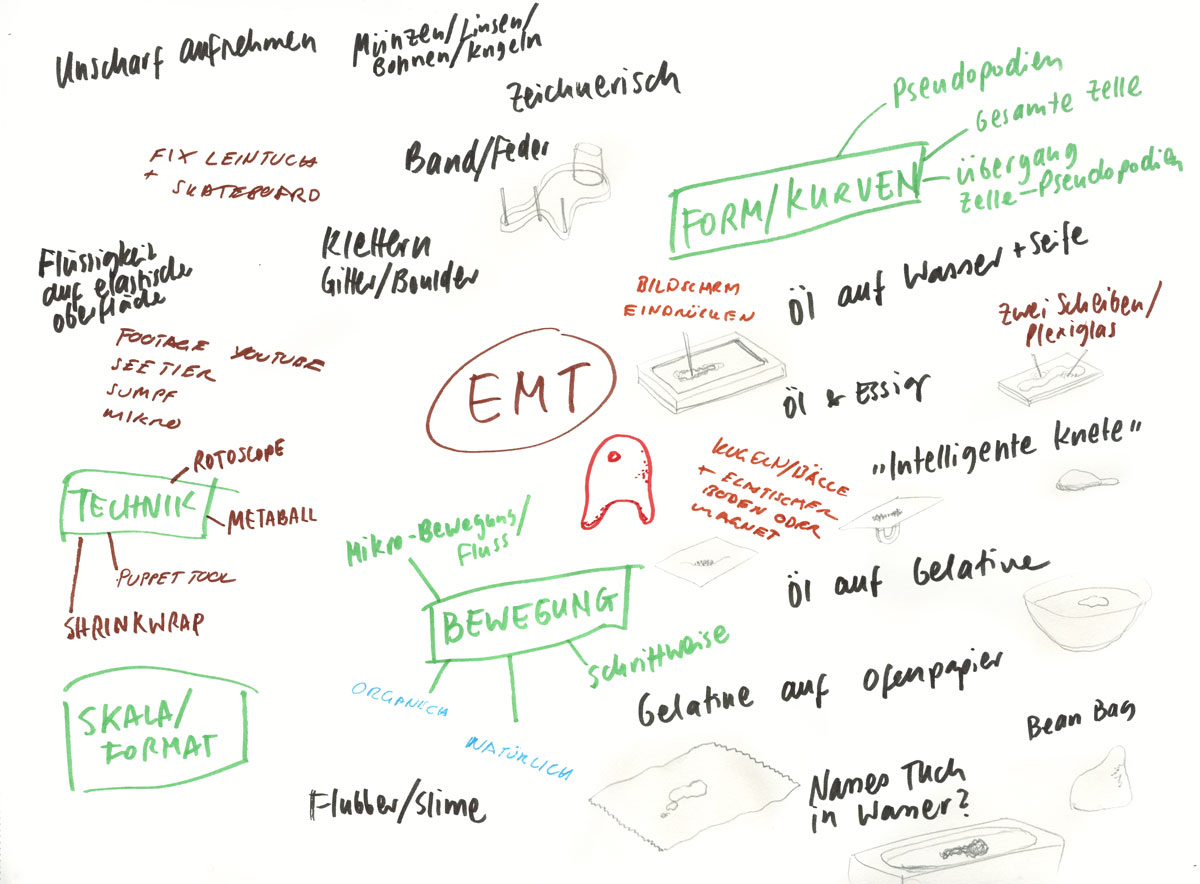 Unscharf aufnehmen
Münzen/Linsen/
Bohnen/Kugeln
Zeichnerisch
Pseudopodien
Gesamte Zelle
Übergang
Zelle-Pseudopodien
FORM/KURVEN
FIX LEINTUCH
+ SKATEBOARD
Band/Feder
Flüssigkeit
auf elastische
Oberfläche
Klettern
Gitter/Boulder
Öl auf Wasser + Seife
BILDSCHIRM
EINDRÜCKEN
Zwei Scheiben/
Plexiglas
FOOTAGE YOUTUBE
SEETIER
SUMPF
MIKRO
EMT
Öl & Essig
"Intelligente Knete"
ROTOSCOPE
TECHNIK
METABALL
PUPPET TOOL
SHRINKWRAP
KUGELN/BÄLLE
+ ELASTISCHER
BODEN ODER
MAGNET
Mikro-Bewegung/
Fluss
BEWEGUNG
Schrittweise
ORGANISCH
NATÜRLICH
Öl auf Gelatine
Gelatine auf Ofenpapier
SKALA/
FORMAT
Bean Bag
Flubber/Slime
Nasses Tuch
in Wasser?